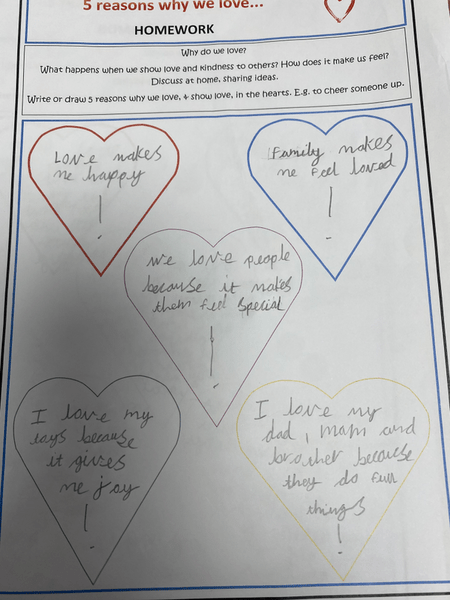 5 reasons why we love...
HOMEWORK
Why do we love?
What happens when we show love and kindness to others? How does it make us feel?
Discuss at home, sharing ideas.
Write or draw 5 reasons why we love, & show love, in the hearts. E.g. to cheer someone up.
Love makes
me happy
!
Family makes
me feel loved
!
We love people
because it makes
them feel special
!
I love my
toys because
it gives
me joy
!
I love my
dad, mam and
brother because
they do fun
things
!